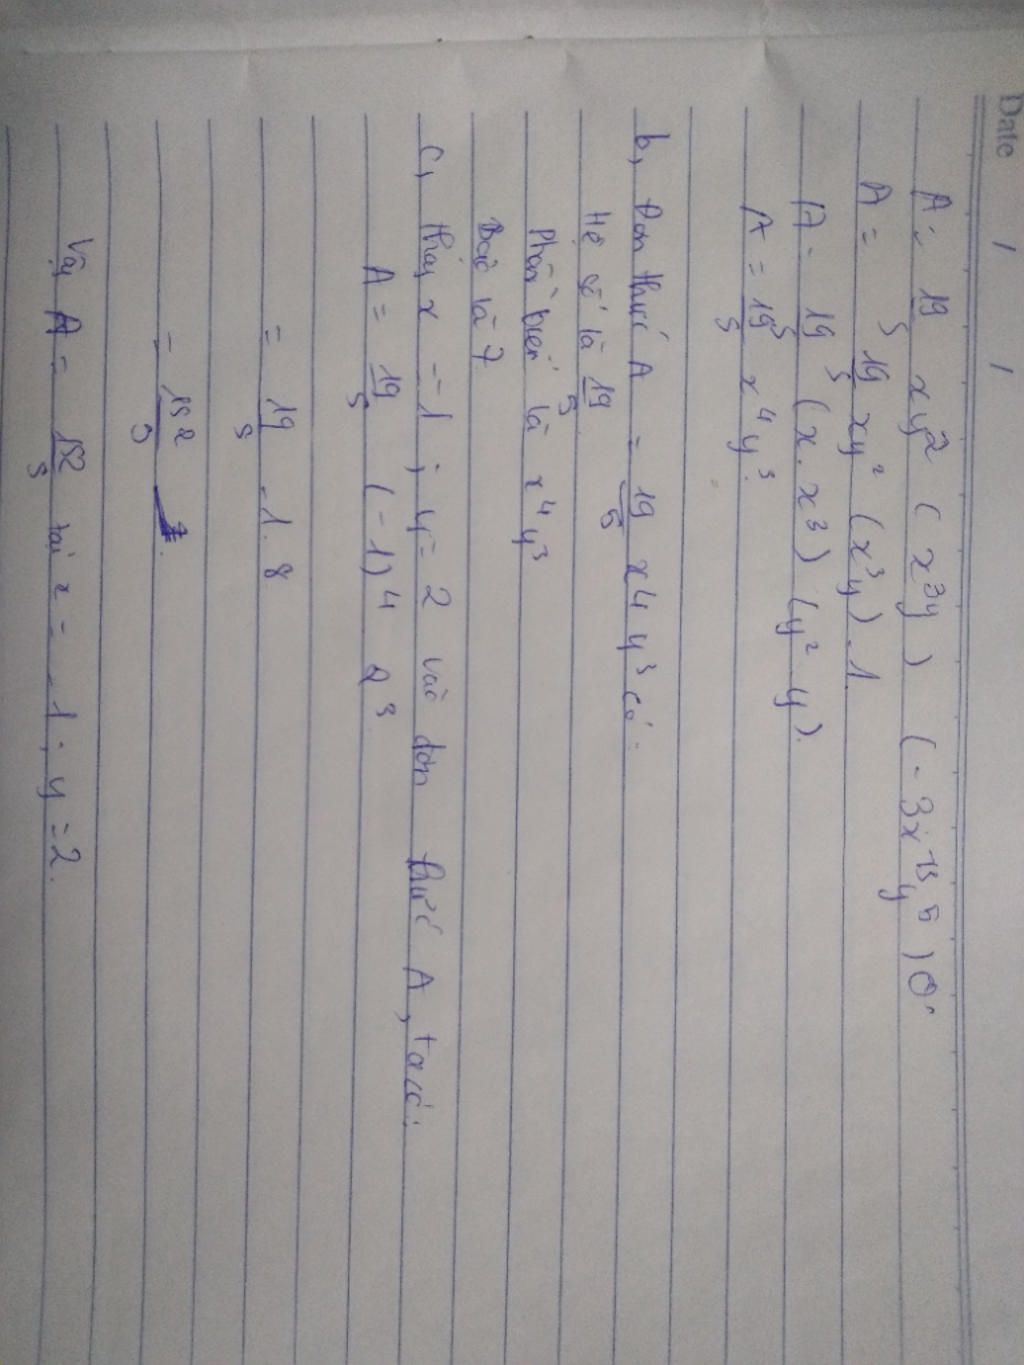 Date / /
A = 19/5 xy² ( x³y ) ( - 3x¹³y⁵ )⁰.
A = 19/5 xy² (x³y) . 1.
A = 19/5 (x . x³) (y² y).
A = 19/5 x⁴y³.
b, Đơn thức A = 19/5 x⁴y³ có:
Hệ số là 19/5
Phần biến là x⁴y³
Bậc là 7
c, thay x = -1 ; y = 2 vào đơn thức A, ta có:
A = 19/5 (-1)⁴ 2³
= 19/5 . 1 . 8
= 152/5
Vậy A = 152/5 tại x = -1 ; y = 2.